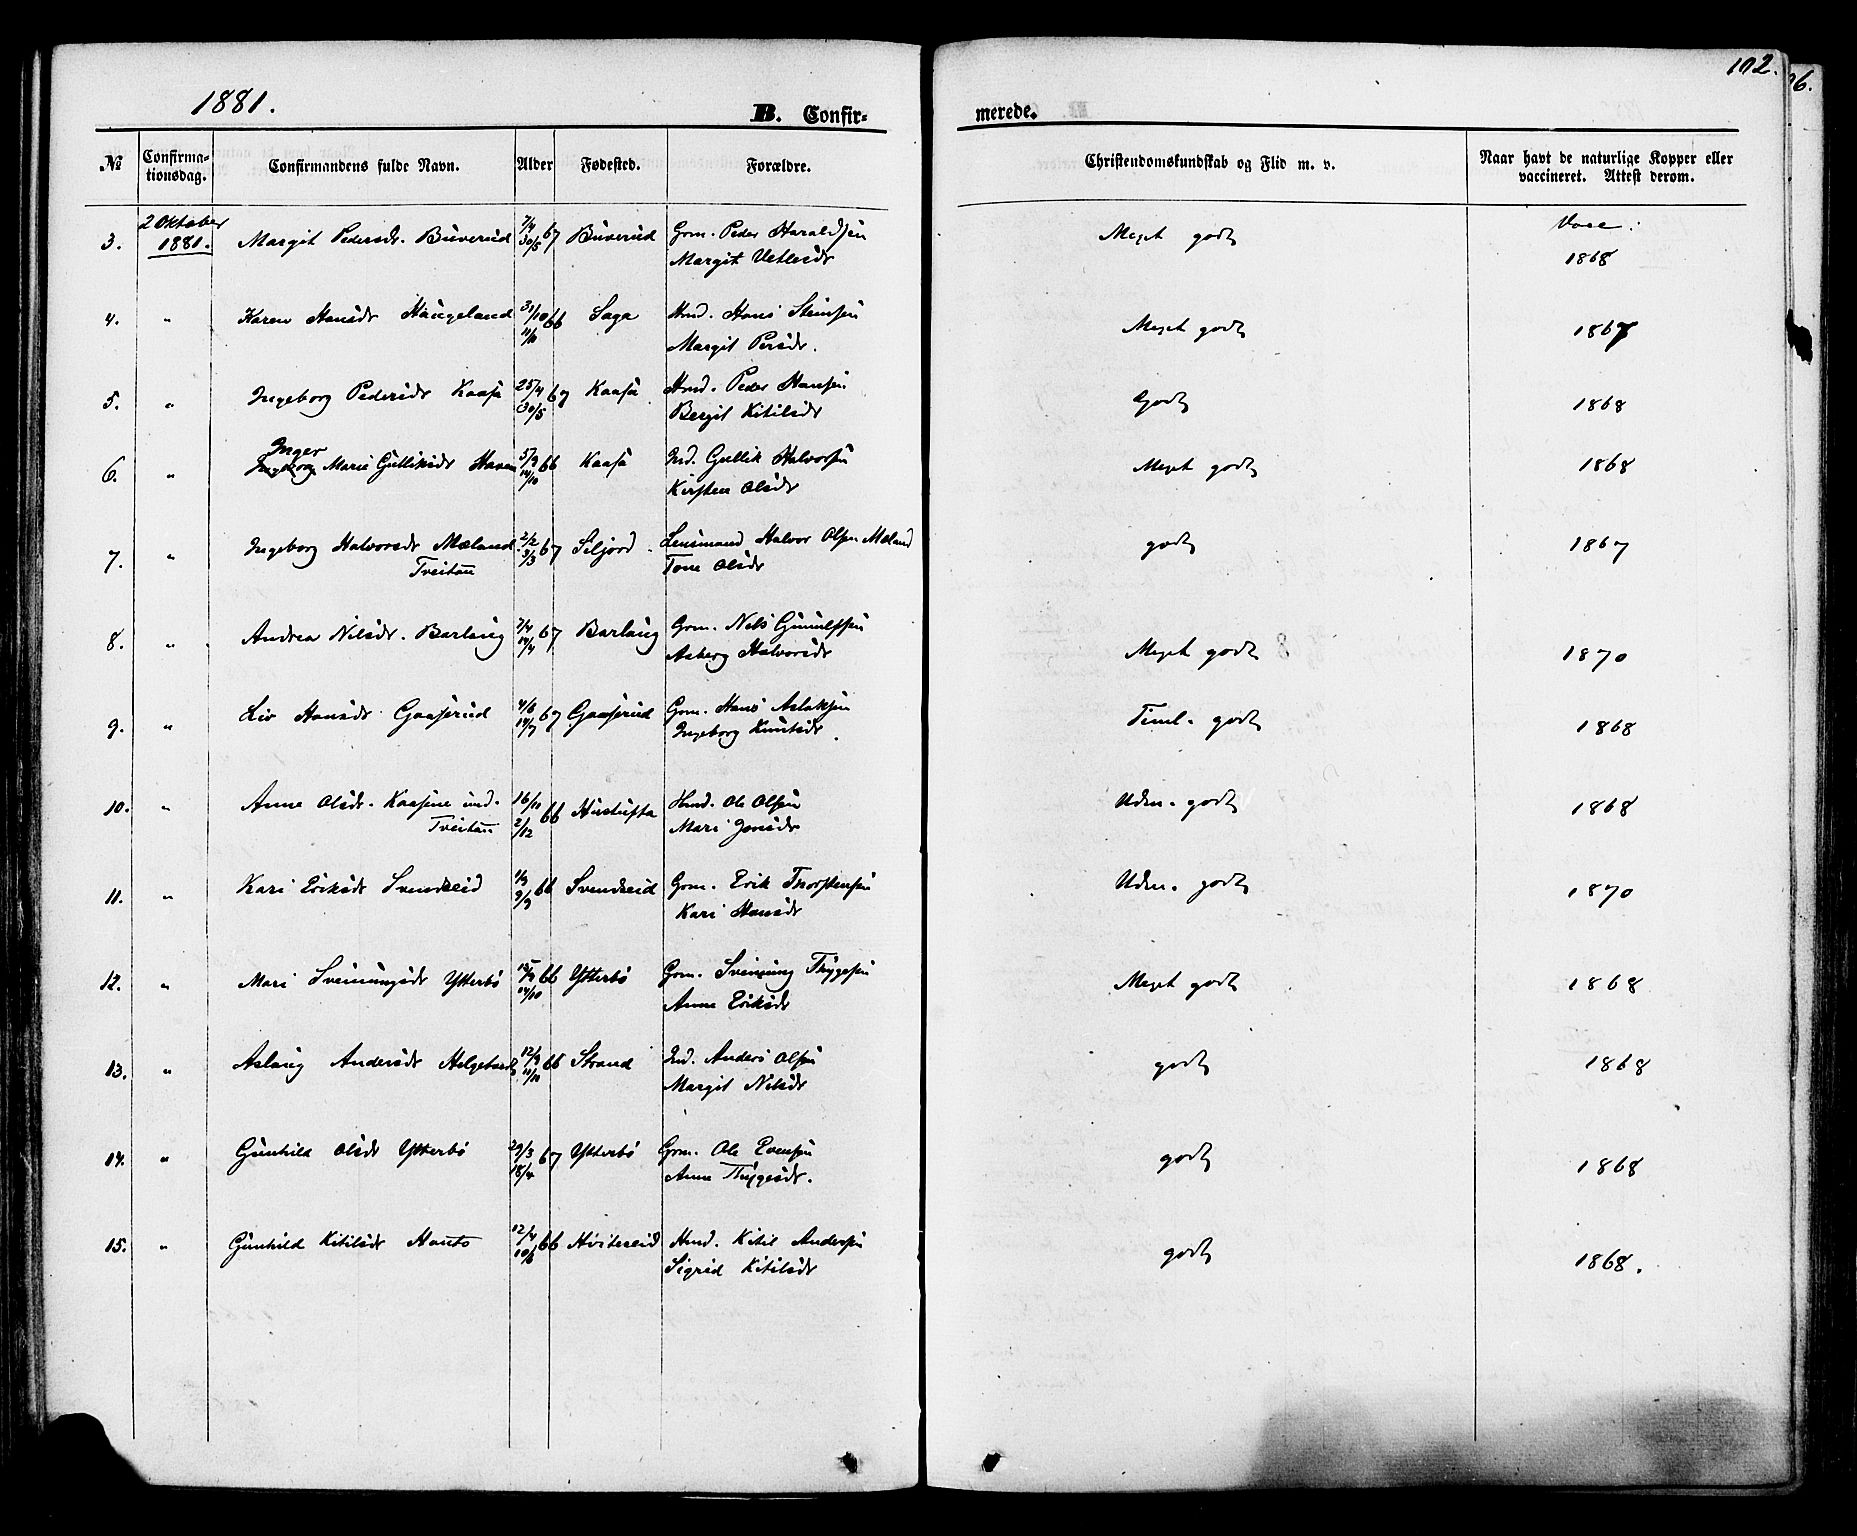 102.
1881.
B. Confirmerede.
№ Confirmationsdag. Confirmandens fulde Navn. Alder Fødested. Forældre. Christendomskundskab og Flid m. v. Naar havt de naturlige Kopper eller vaccineret. Attest derom.
3. 2 Oktober 1881. Margit Pedersdr. Buverud 7/4 30/5 67 Buverud Grm. Peder Haraldsen Meget godt Vacc:
Margit Vetlesdr 1868
4. " Karen Hansdr Haugeland 31/10 66 Saga Hmd. Hans Steinsen Meget godt 1867
Margit Persdr.
5. " Ingeborg Pedersdr Kaasa 25/4 30/5 67 Kaasa Hmd. Peder Hansen Godt 1868
Bergit Kitilsdr
6. " Inger Marie Gulliksdr Haven 5/9 14/10 66 Kaasa Ind. Gullik Halvorsen Meget godt 1868
Kirsten Olsdr
7. " Ingeborg Halvorsdr Mæland 2/2 3/3 67 Seljord. Lensmand Halvor Olsen Mæland godt 1867
Tveitan Tone Olsdr
8. " Andrea Nilsdr. Barlaug 7/4 14/4 67 Barlaug Grm. Nils Gunulfsen Meget godt 1870
Asberg Halvorsdr
9. " Liv Hansdr Gaaserud 4/6 14/7 67 Gaaserud Grm. Hans Aslaksen Timl. godt 1868
Ingeborg Knutsdr.
10. " Anne Olsdr. Kaasene ind. 16/11 2/12 66 Hustufta Hmd. Ole Olsen Udm. godt 1868
Tveitan Mari Jonsdr
11. " Kari Eriksdr Svendseid 1/9 9/9 66 Svendseid Grm. Erik Thorstensen Udm. godt 1870
Kari Hansdr
12. " Mari Sveinungsdr Ytterbö 14/10 66 Ytterbö Grm. Sveinung Thygesen Meget godt 1868
Anne Eriksdr
13. " Aslaug Andersdr 12/9 66 Strand Ind. Anders Olsen godt 1868
Margit Nilsdr
14. " Gunhild Olsdr Ytterbö 29/3 18/4 67 Ytterbö Grm. Ole Evensen godt 1868
Anne Thygesdr.
15. " Gunhild Kitilsdr Hauto 12/4 66 Hviteseid Hmd. Kitil Andersen godt 1868.
Sigrid Kitilsdr